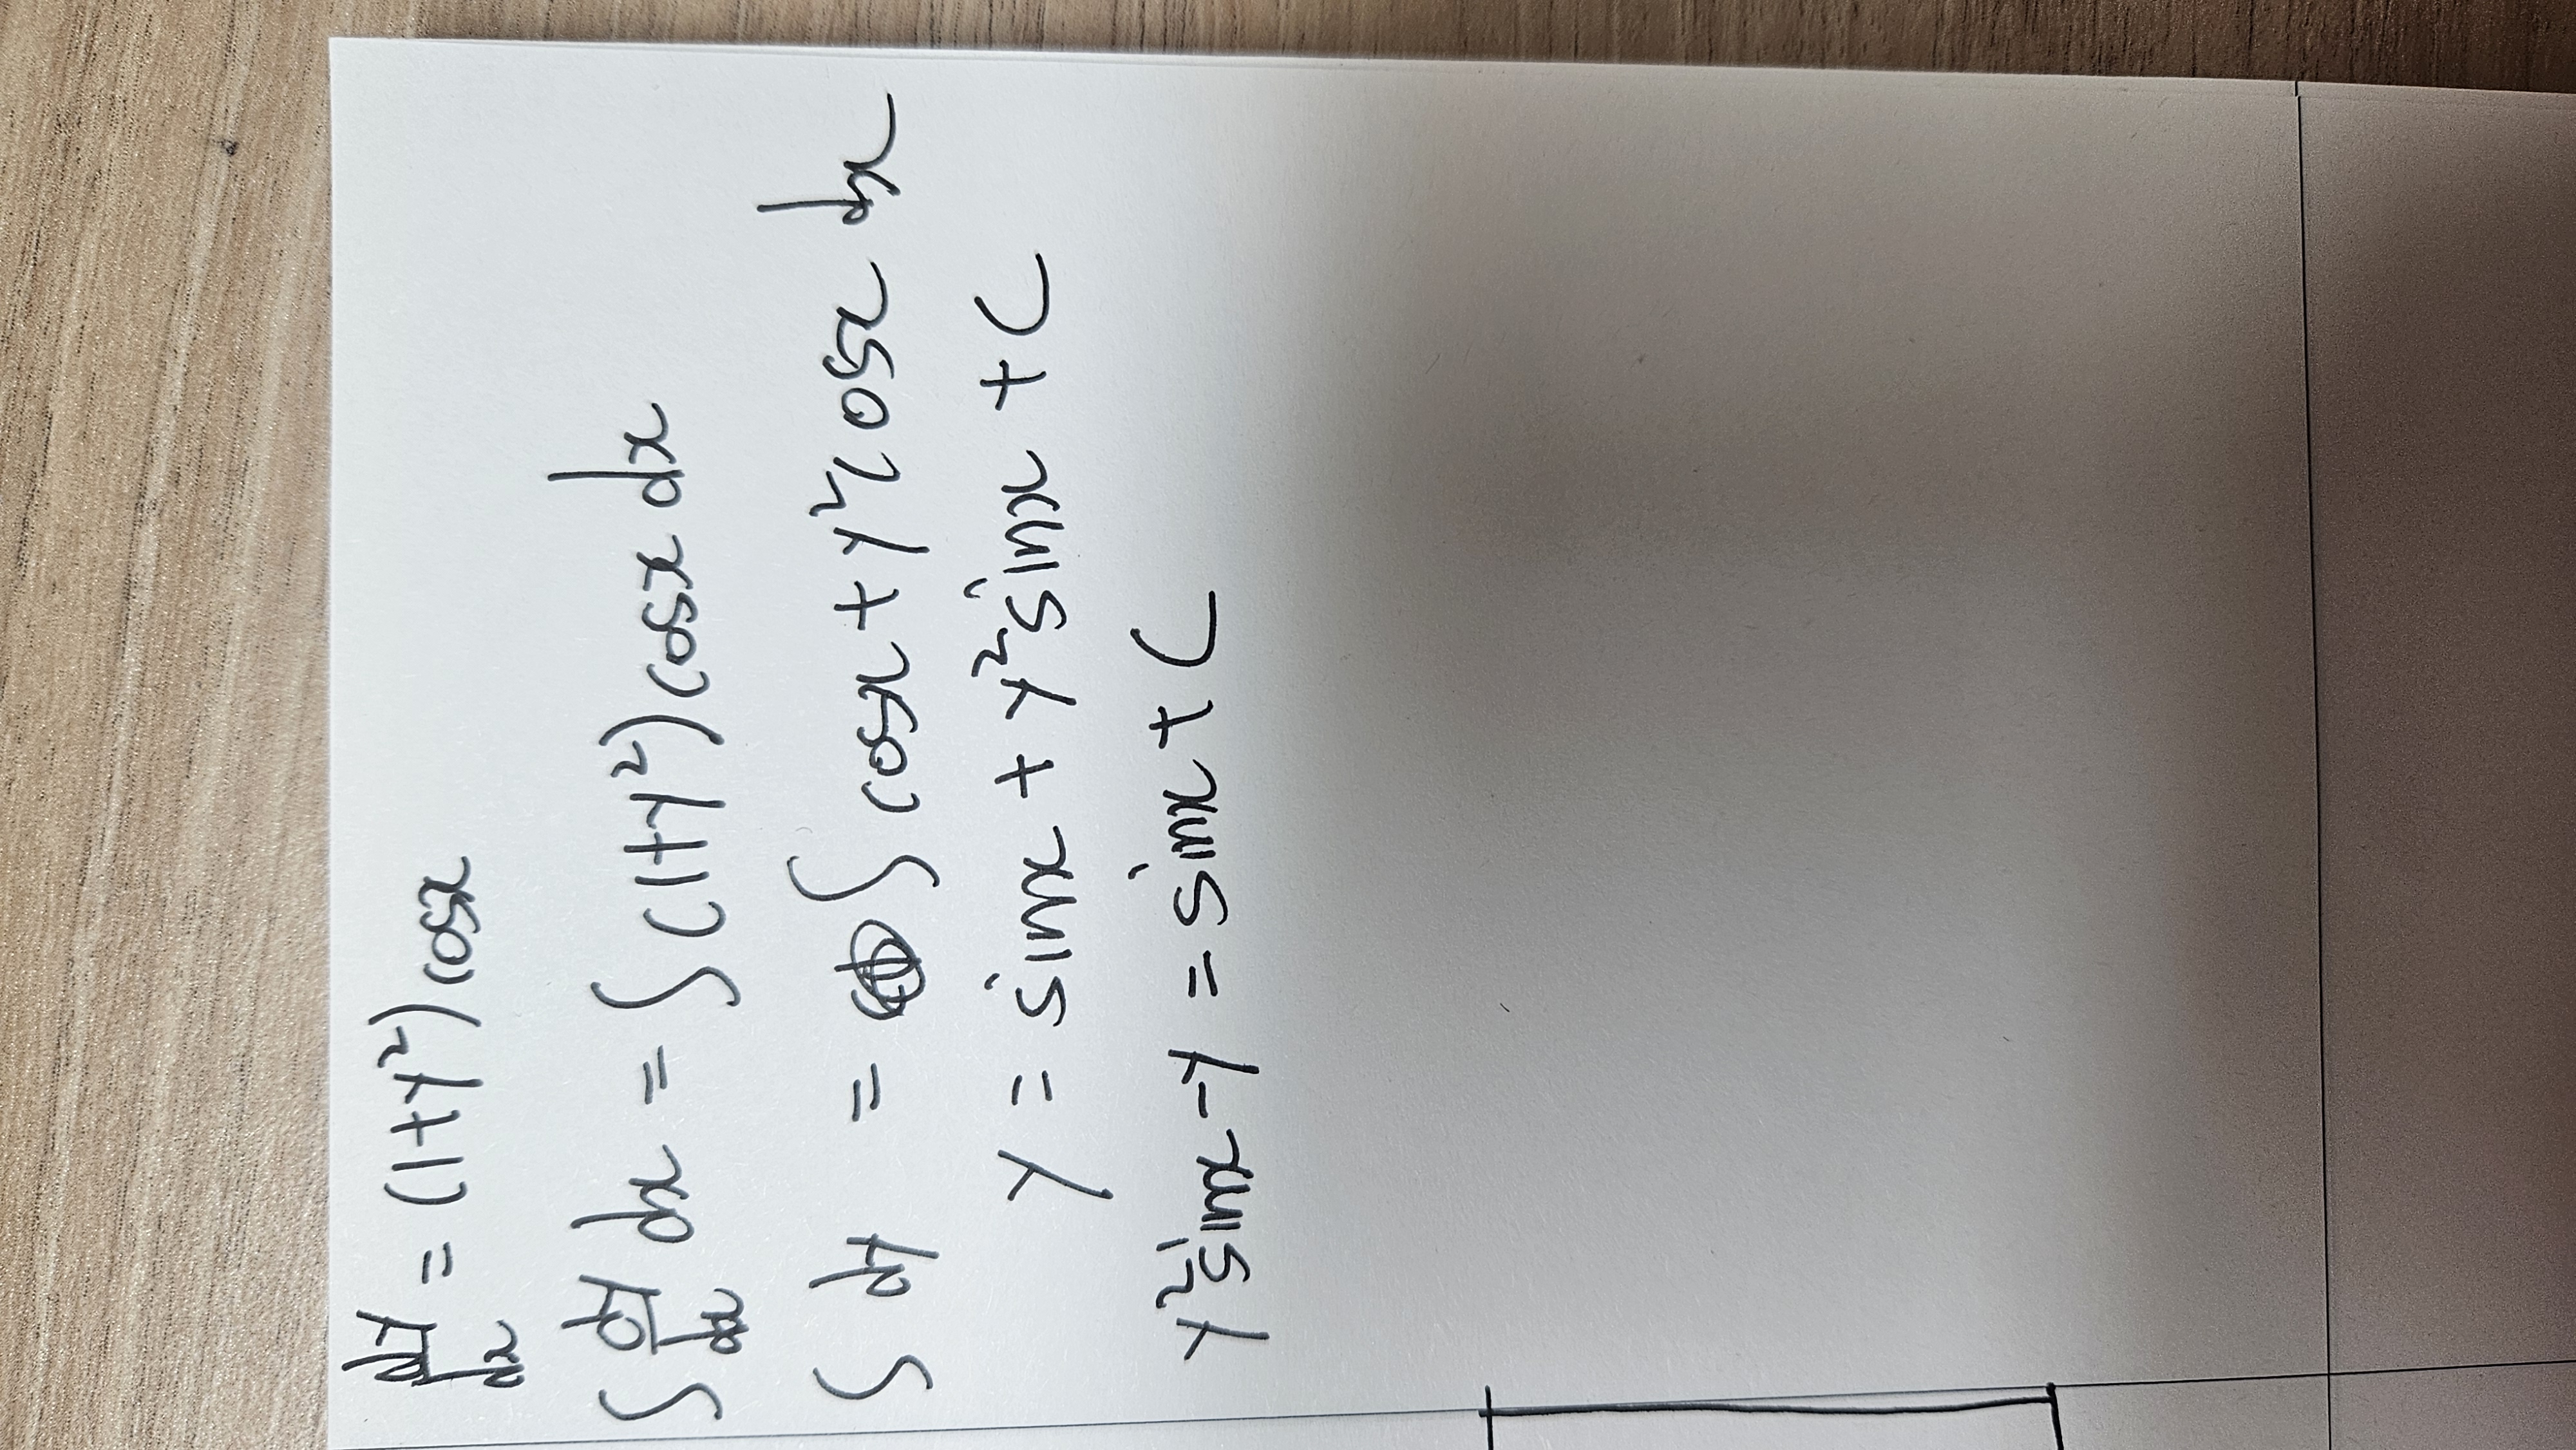 dy/dx = (1+y²)cosx
∫ dy/dx dx = ∫ (1+y²)cosx dx
∫ dy = ∫ cosx + y²cosx dx
y = sinx + y²sinx + C
y²sinx - y = sinx + C